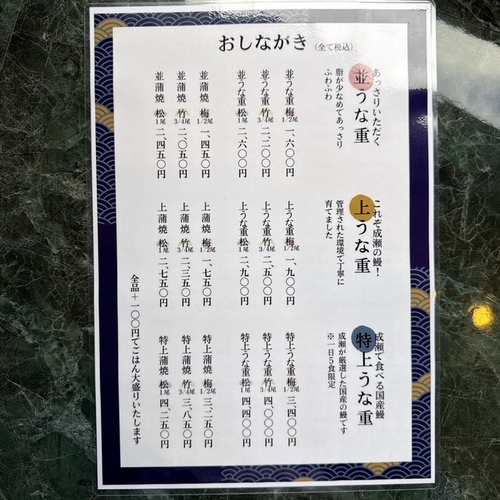 おしながき(全て税込)
あっさりいただく
並うな重
脂が少なめであっさり
ふわふわ
並うな重 梅1/2尾 一、六〇〇円
並うな重 竹3/4尾 二、二〇〇円
並うな重 松1尾 二、六〇〇円
並蒲焼 梅1/2尾 一、四五〇円
並蒲焼 竹3/4尾 二、〇五〇円
並蒲焼 松1尾 二、四五〇円
これぞ成瀬の鰻!
上うな重
管理された環境で丁寧に
育てました
上うな重 梅1/2尾 一、九〇〇円
上うな重 竹3/4尾 二、五〇〇円
上うな重 松1尾 二、九〇〇円
上蒲焼 梅1/2尾 一、七五〇円
上蒲焼 竹3/4尾 二、三五〇円
上蒲焼 松1尾 二、七五〇円
成瀬で食べる国産鰻
特上うな重
成瀬が厳選した国産の鰻です
※一日5食限定
特上うな重 梅1/2尾 三、四〇〇円
特上うな重 竹3/4尾 四、〇〇〇円
特上うな重 松1尾 四、四〇〇円
特上蒲焼 梅1/2尾 三、二五〇円
特上蒲焼 竹3/4尾 三、八五〇円
特上蒲焼 松1尾 四、二五〇円
全品+一〇〇円でごはん大盛りいたします